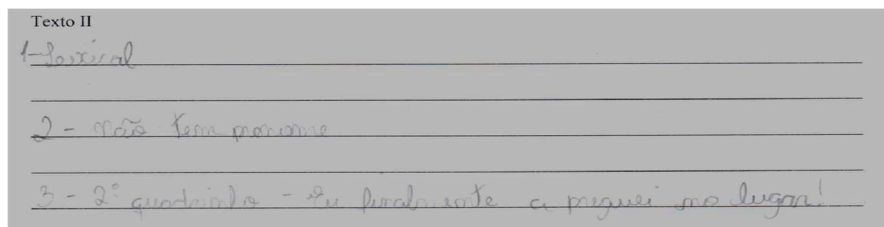 Texto II
1-Lexical
2 - não tem pronome
3 - 2º quadrinho - Eu finalmente a preguei no lugar!